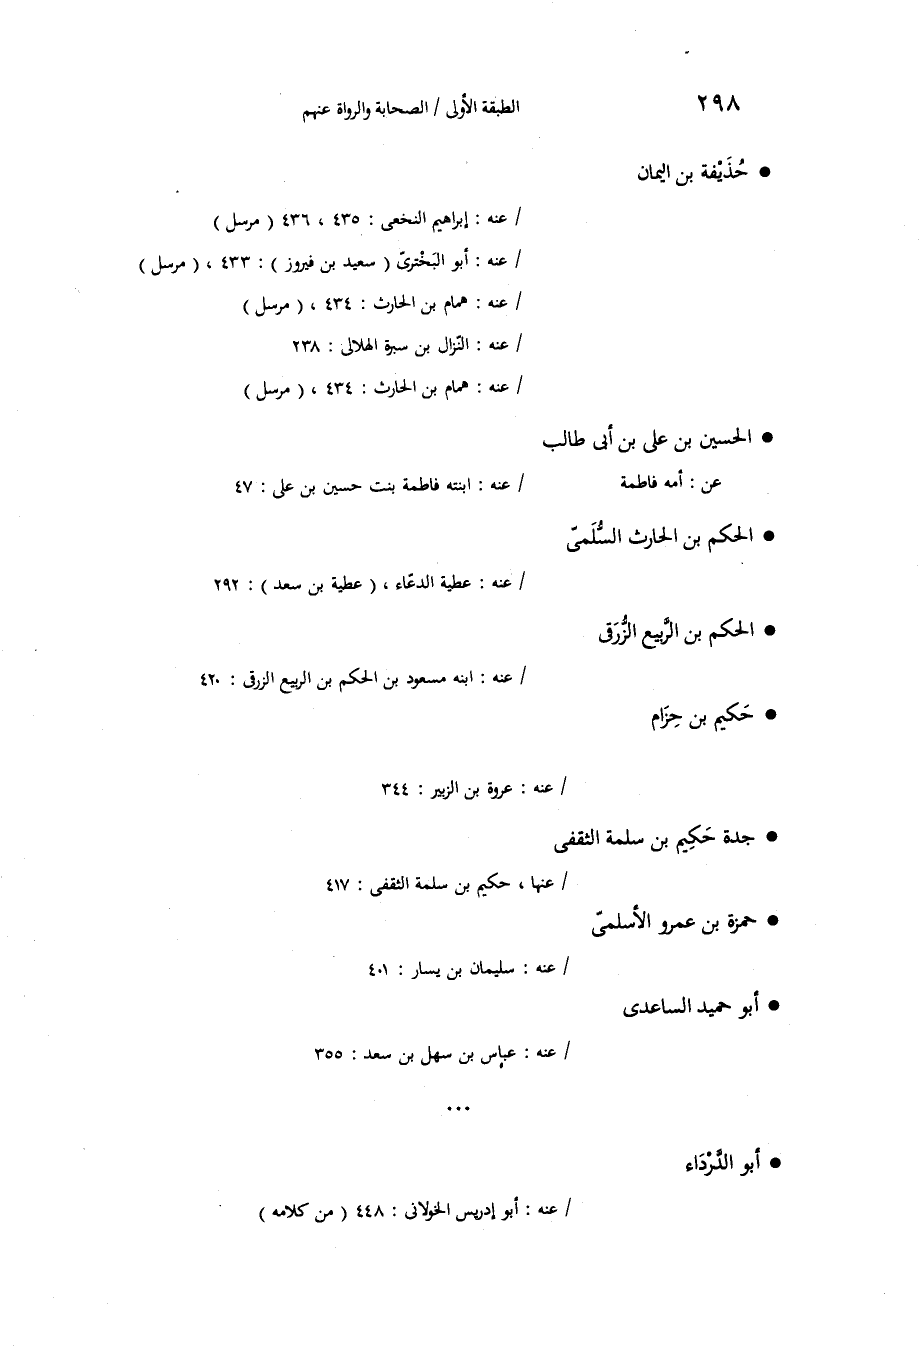 ٢٩٨
الطبقة الأولى / الصحابة والرواة عنهم
● حُذَيْفة بن اليمان
/ عنه : إبراهيم النخعى : ٤٣٥ ، ٤٣٦ ( مرسل )
/ عنه : أبو البَخْترىّ ( سعيد بن فيروز ) : ٤٣٣ ، ( مرسل )
/ عنه : همام بن الحارث : ٤٣٤ ، ( مرسل )
/ عنه : النّزال بن سبرة الهلالى : ٢٣٨
/ عنه : همام بن الحارث : ٤٣٤ ، ( مرسل )
● الحسين بن على بن أبى طالب
عن : أمه فاطمة / عنه : ابنته فاطمة بنت حسين بن على : ٤٧
● الحكم بن الحارث السُّلَمىّ
/ عنه : عطية الدعّاء ، ( عطية بن سعد ) : ٢٩٢
● الحكم بن الرَّبيع الزُّرَقى
/ عنه : ابنه مسعود بن الحكم بن الربيع الزرقى : ٤٢٠
● حَكيم بن حِزَام
/ عنه : عروة بن الزبير : ٣٤٤
● جدة حَكِيم بن سلمة الثقفى
/ عنها ، حكيم بن سلمة الثقفى : ٤١٧
● حمزة بن عمرو الأسلمىّ
/ عنه : سليمان بن يسار : ٤٠١
● أبو حميد الساعدى
/ عنه : عباس بن سهل بن سعد : ٣٥٥
...
● أبو الدَّرْدَاء
/ عنه : أبو إدريس الخولانى : ٤٤٨ ( من كلامه )